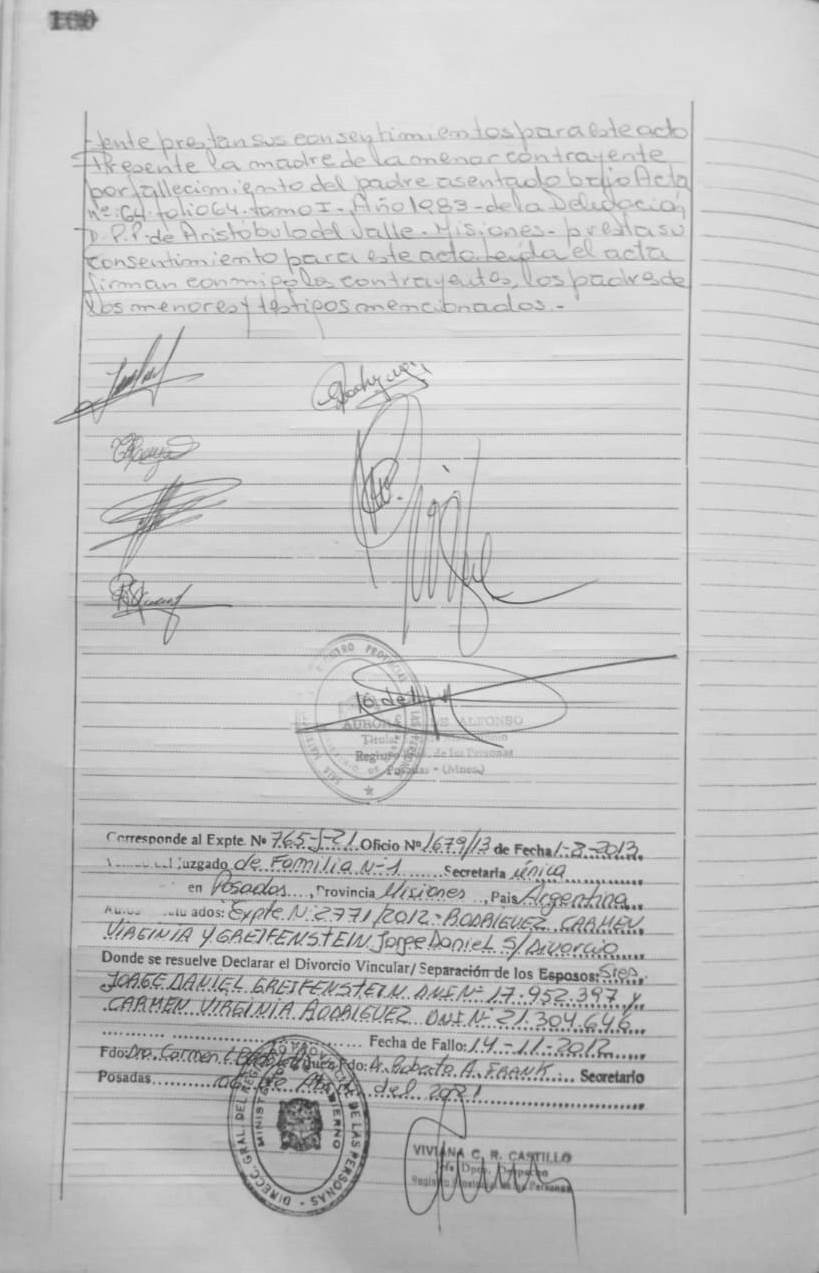 100
-tente prestan sus consentimientos para este acto
Presente la madre de la menor contrayente
por fallecimiento del padre asentado bajo Acta
nº: 64. folio 64. tomo I - Año 1983 - de la Delegación
D.P.P. de Aristobulo del Valle - Misiones - presta su
consentimiento para este acto. Leida el acta
firman conmigo los contrayentes, los padres de
los menores y testigos mencionados.-
REGISTRO PROVINCIAL DE LAS PERSONAS
AURORA DE ALFONSO
Titular
Registro Prov. de las Personas
Posadas - (Mnes.)
Corresponde al Expte. Nº 765-J-21. Oficio Nº 1679/13 de Fecha 1-8-2013.
Juzgado de Familia N-1 Secretaria única
en Posadas, Provincia Misiones, Pais Argentina
Autos caratulados: Expte. N. 2771/2012 - RODRIGUEZ CARMEN
VIRGINIA Y GREIFENSTEIN Jorge Daniel S/ Divorcio
Donde se resuelve Declarar el Divorcio Vincular/ Separación de los Esposos: Sres.
JORGE DANIEL GREIFENSTEIN DNI Nº 17.952.397 y
CARMEN VIRGINIA RODRIGUEZ DNI Nº 21.304.646
Fecha de Fallo: 14-11-2012
Fdo: Dra. Carmen Fdo: A. Roberto A. FRANK Secretario
Posadas de del 2021
DIRECC. GRAL. DEL REG. PROVINCIAL DE LAS PERSONAS
MINISTERIO DE GOBIERNO
VIVIANA C. R. CASTILLO
Jefe Dpto. Despacho
Registro Provincial de las Personas